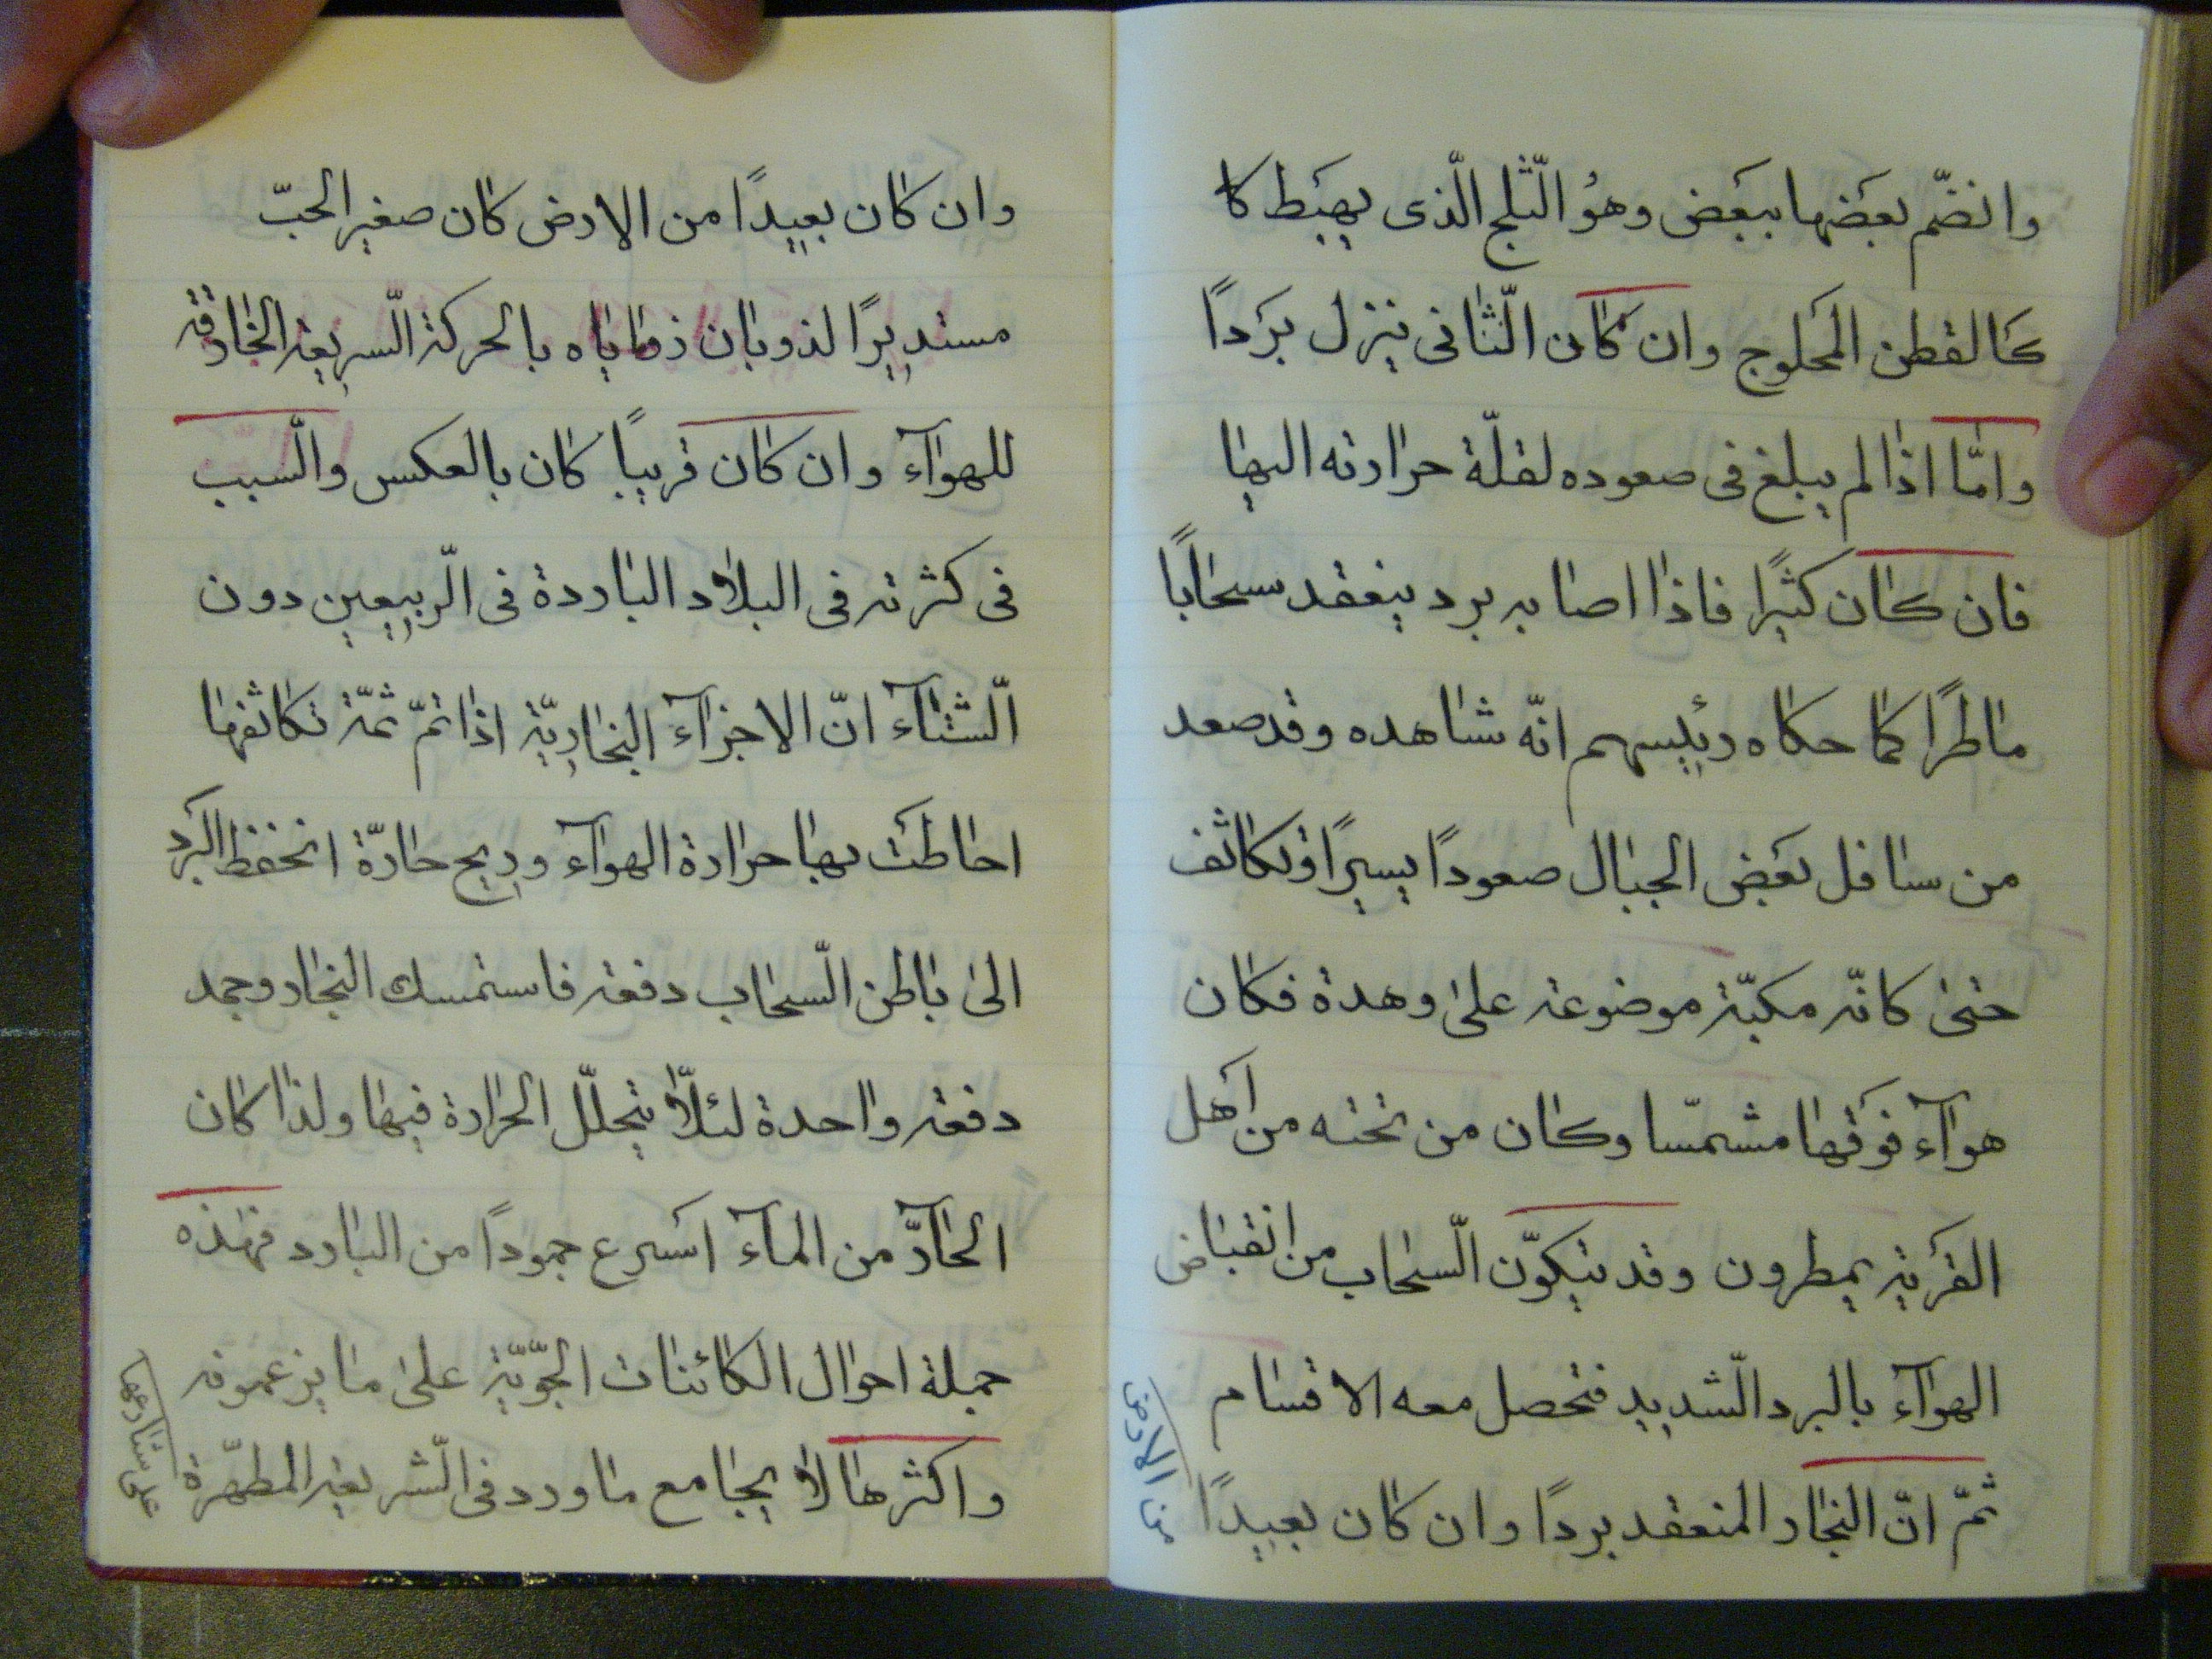 وانضّم بعَضها ببَعَض وهوُ الثّلج الّذى يهبَط كا
كالقطن المَحلوج وان كان الثّانى ينزل برَداً
وامّا اذا لم يبلغ فى صعوده لقلّة حرارته اليها
فان كان كثيًرا فاذا اصابه برد ينعقد سحاباً
ماطرًا كما حكاه رئيسهم انّه شاهده وقد صعد
من سافل بعَض الجبال صعوداً يسيرًا وتكاثف
حتى كانّه مكبّة موضوعة على وهدة فكان
هوآء فوَقها مشمسّا وكان من تحته من اَهل
القرَية يمطرون وقد يتكوّن السّحاب من انقباض
الهوآء بالبرد الشّديد فتحصل معه الاقسام
ثمّ انّ البخار المنعقد بردًا وان كان بعيداً
من الارض
وان كان بعيدًا من الارض كان صغير الحبّ
مستديرًا لذوبان زواياه بالحركة السّريعة الخارقة
للهوآء وان كان قريبًا كان بالعكس والسّبب
فى كثرته فى البلاد الباردة فى الرّبيعين دون
الشّتآء انّ الاجزآء البخاريّة اذا تمّ ثمّة تكاثفها
احاطَت بها حرارة الهوآء وريح حارّة انحفظ البَرد
الى باطن السّحاب دفعة فاستمسك البخار وجمد
دفعة واحدة لئلّا يتحلّل الحرارة فيها ولذا كان
الحآرّ من المآء اسَرع جموداً من البارد فهذه
جملة احوال الكائنات الجّويّة على ما يزعمونه
واكثرها لا يجامع ما ورد فى الشّريعة المطهّرة
على شارعها